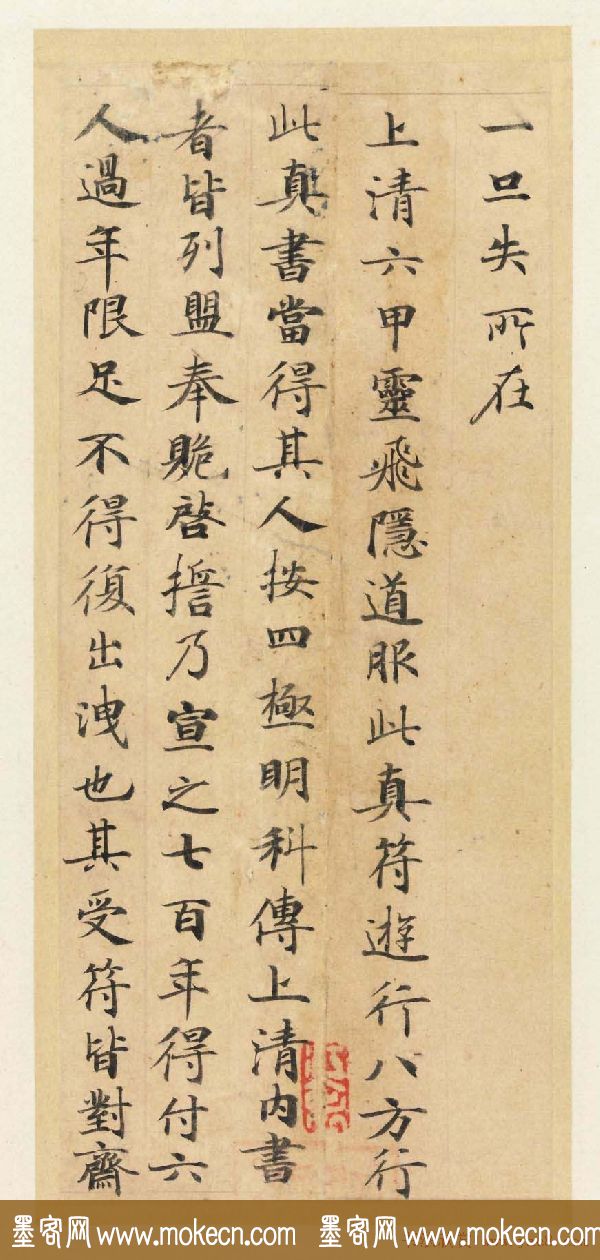 一旦失所在
上清六甲靈飛隱道服此真符遊行八方行
此真書當得其人按四極明科傳上清内書
者皆列盟奉貺啓誓乃宣之七百年得付六
人過年限足不得復出洩也其受符皆對齋
墨客网 www.mokecn.com 墨客网 www.mokecn.com